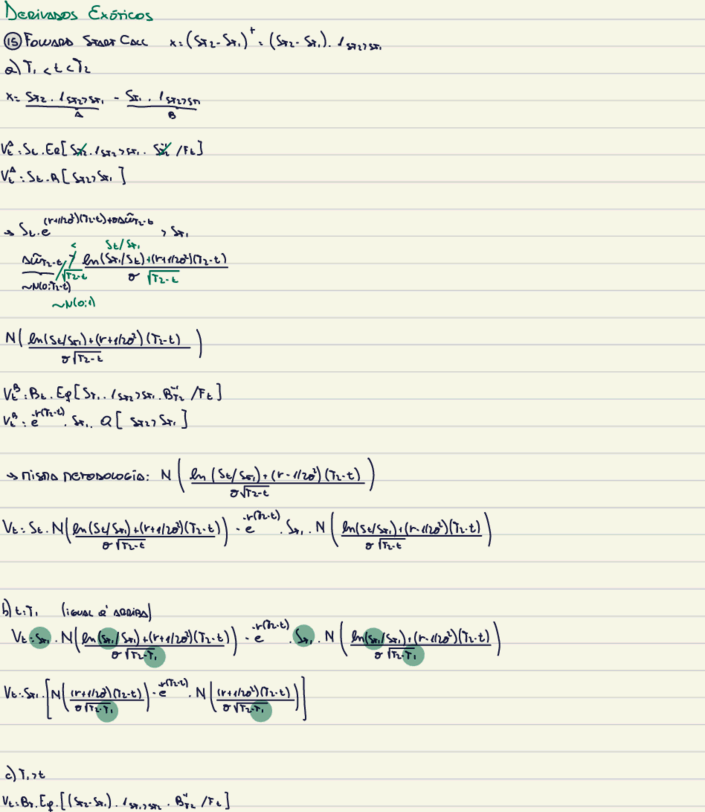 Derivados Exóticos
⑮ Foward Start Call x=(S_T2-S_T1)^+ = (S_T2-S_T1).1_{S_T2>S_T1}
a) T1 < t < T2
x= S_T2.1_{S_T2>S_T1} - S_T1.1_{S_T2>S_T1}
A B
V_t^A: S_t.E_Q[S_T2.1_{S_T2>S_T1}.S_T2^-1/F_t]
V_t^A: S_t.Q[S_T2>S_T1]
→ S_t.e^{(r+1/2σ²)(T2-t)+σΔW̃_{T2-t}} > S_T1
< S_t/S_T1
ΔW̃_{T2-t}/√T2-t > ln(S_T1/S_t)+(r+1/2σ²)(T2-t) / σ√T2-t
~N(0;T2-t)
~N(0;1)
N( ln(S_t/S_T1)+(r+1/2σ²)(T2-t) / σ√T2-t )
V_t^B: B_t.E_Q[S_T1.1_{S_T2>S_T1}.B_T2^-1/F_t]
V_t^B: e^{-r(T2-t)}.S_T1.Q[S_T2>S_T1]
→ misma metodología: N( ln(S_t/S_T1)+(r-1/2σ²)(T2-t) / σ√T2-t )
V_t: S_t.N( ln(S_t/S_T1)+(r+1/2σ²)(T2-t) / σ√T2-t ) - e^{-r(T2-t)}.S_T1.N( ln(S_t/S_T1)+(r-1/2σ²)(T2-t) / σ√T2-t )
b) t=T1 (igual a' arriba)
V_t: S_T1.N( ln(S_T1/S_T1)+(r+1/2σ²)(T2-t) / σ√T2-T1 ) - e^{-r(T2-t)}.S_T1.N( ln(S_T1/S_T1)+(r-1/2σ²)(T2-t) / σ√T2-T1 )
V_t: S_T1.[ N( (r+1/2σ²)(T2-t) / σ√T2-T1 ) - e^{-r(T2-t)}.N( (r-1/2σ²)(T2-t) / σ√T2-T1 ) ]
c) T1>t
V_t: B_t.E_Q.[(S_T2-S_T1).1_{S_T1>S_T2}.B_T2^-1/F_t]